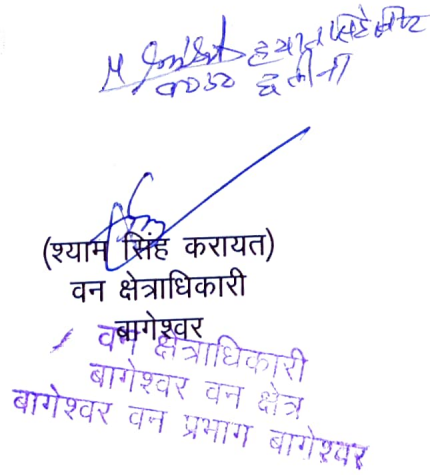 (श्याम सिंह करायत)
वन क्षेत्राधिकारी
बागेश्वर
वन क्षेत्राधिकारी
बागेश्वर वन क्षेत्र
बागेश्वर वन प्रभाग बागेश्वर